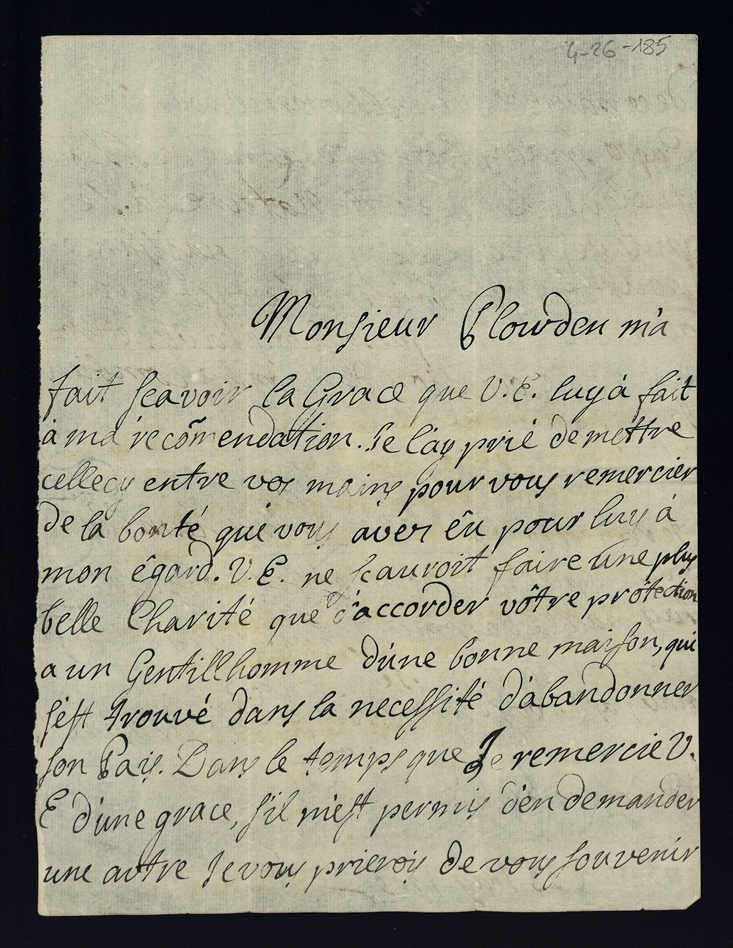 4-26-185
Monsieur Plowden m'a
fait sçavoir la Grace que V. E. luy à fait
à ma recõmendation. Je l'ay prié de mettre
cellecy entre vos mains pour vous remercier
de la bonté que vous aves êu pour luy à
mon égard. V. E. ne sçauroit faire une plus
belle Charité que d'accorder vôtre protection
a un Gentillhomme d'une bonne maison, qui
s'est trouvé dans la necessité d'abandonner
son Païs. Dans le temps que Je remercie V.
E d'une grace, s'il m'est permis d'en demander
une autre Je vous prierois de vous souvenir